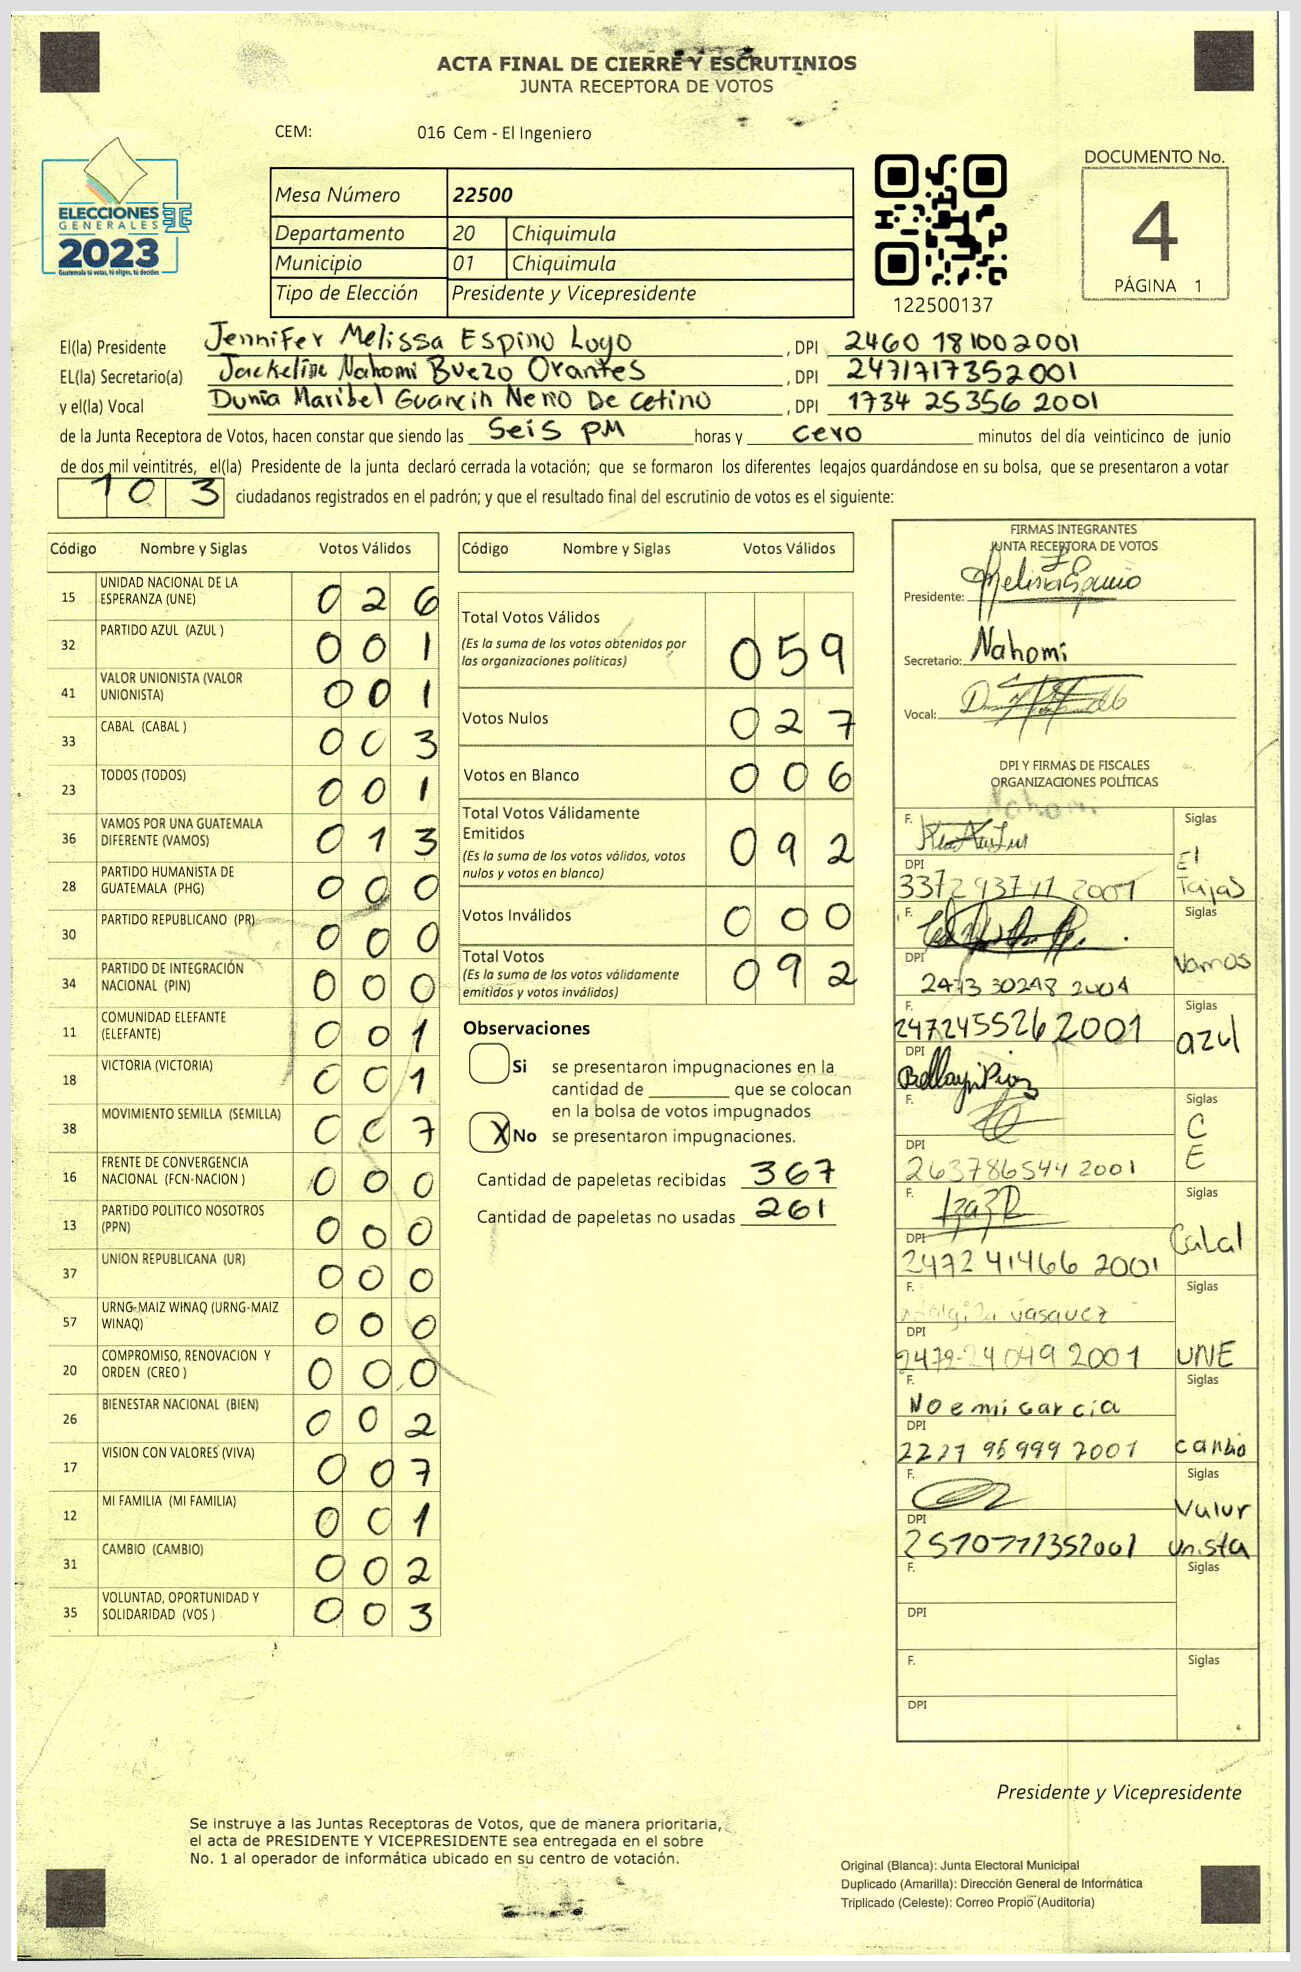 ACTA FINAL DE CIERRE Y ESCRUTINIOS
JUNTA RECEPTORA DE VOTOS
CEM: 016 Cem - El Ingeniero
ELECCIONES
GENERALES
2023
Guatemala tú votas, tú eliges, tú decides
Mesa Número 22500
Departamento 20 Chiquimula
Municipio 01 Chiquimula
Tipo de Elección Presidente y Vicepresidente
122500137
DOCUMENTO No.
4
PÁGINA 1
El(la) Presidente Jennifer Melissa Espino Loyo , DPI 2460 18100 2001
EL(la) Secretario(a) Jackeline Nahomi Buezo Orantes , DPI 2471717352001
y el(la) Vocal Dunia Maribel De Cetino , DPI 1734 25356 2001
de la Junta Receptora de Votos, hacen constar que siendo las Seis PM horas y cero minutos del día veinticinco de junio
de dos mil veintitrés, el(la) Presidente de la junta declaró cerrada la votación; que se formaron los diferentes legajos guardándose en su bolsa, que se presentaron a votar
103 ciudadanos registrados en el padrón; y que el resultado final del escrutinio de votos es el siguiente:
Código Nombre y Siglas Votos Válidos
15 UNIDAD NACIONAL DE LA ESPERANZA (UNE) 026
32 PARTIDO AZUL (AZUL ) 001
41 VALOR UNIONISTA (VALOR UNIONISTA) 001
33 CABAL (CABAL ) 003
23 TODOS (TODOS) 001
36 VAMOS POR UNA GUATEMALA DIFERENTE (VAMOS) 013
28 PARTIDO HUMANISTA DE GUATEMALA (PHG) 000
30 PARTIDO REPUBLICANO (PR) 000
34 PARTIDO DE INTEGRACIÓN NACIONAL (PIN) 000
11 COMUNIDAD ELEFANTE (ELEFANTE) 001
18 VICTORIA (VICTORIA) 001
38 MOVIMIENTO SEMILLA (SEMILLA) 007
16 FRENTE DE CONVERGENCIA NACIONAL (FCN-NACION ) 000
13 PARTIDO POLITICO NOSOTROS (PPN) 000
37 UNION REPUBLICANA (UR) 000
57 URNG-MAIZ WINAQ (URNG-MAIZ WINAQ) 000
20 COMPROMISO, RENOVACION Y ORDEN (CREO ) 000
26 BIENESTAR NACIONAL (BIEN) 002
17 VISION CON VALORES (VIVA) 007
12 MI FAMILIA (MI FAMILIA) 001
31 CAMBIO (CAMBIO) 002
35 VOLUNTAD, OPORTUNIDAD Y SOLIDARIDAD (VOS ) 003
Código Nombre y Siglas Votos Válidos
Total Votos Válidos 059
(Es la suma de los votos obtenidos por
las organizaciones políticas)
Votos Nulos 027
Votos en Blanco 006
Total Votos Válidamente
Emitidos 092
(Es la suma de los votos válidos, votos
nulos y votos en blanco)
Votos Inválidos 000
Total Votos 092
(Es la suma de los votos válidamente
emitidos y votos inválidos)
Observaciones
Si se presentaron impugnaciones en la
cantidad de ________ que se colocan
en la bolsa de votos impugnados
X No se presentaron impugnaciones.
Cantidad de papeletas recibidas 367
Cantidad de papeletas no usadas 261
FIRMAS INTEGRANTES
JUNTA RECEPTORA DE VOTOS
Presidente:
Secretario: Nahomi
Vocal:
DPI Y FIRMAS DE FISCALES
ORGANIZACIONES POLÍTICAS
Nahomi
F. Siglas
DPI El
Tajas
F. Siglas
DPI Vamos
2473 30248 2001
F. Siglas
2472455262001 azul
DPI
F. Siglas
DPI C
E
263786544 2001
F. Siglas
DPI Cabal
2472 41466 2001
F. Siglas
Vasquez
DPI
2472-24049 2001 UNE
F. Siglas
Noemi Garcia
DPI
2227 95999 2001 cambio
F. Siglas
DPI Valor
unista
F. Siglas
DPI
F. Siglas
DPI
Presidente y Vicepresidente
Se instruye a las Juntas Receptoras de Votos, que de manera prioritaria,
el acta de PRESIDENTE Y VICEPRESIDENTE sea entregada en el sobre
No. 1 al operador de informática ubicado en su centro de votación.
Original (Blanca): Junta Electoral Municipal
Duplicado (Amarilla): Dirección General de Informática
Triplicado (Celeste): Correo Propio (Auditoría)